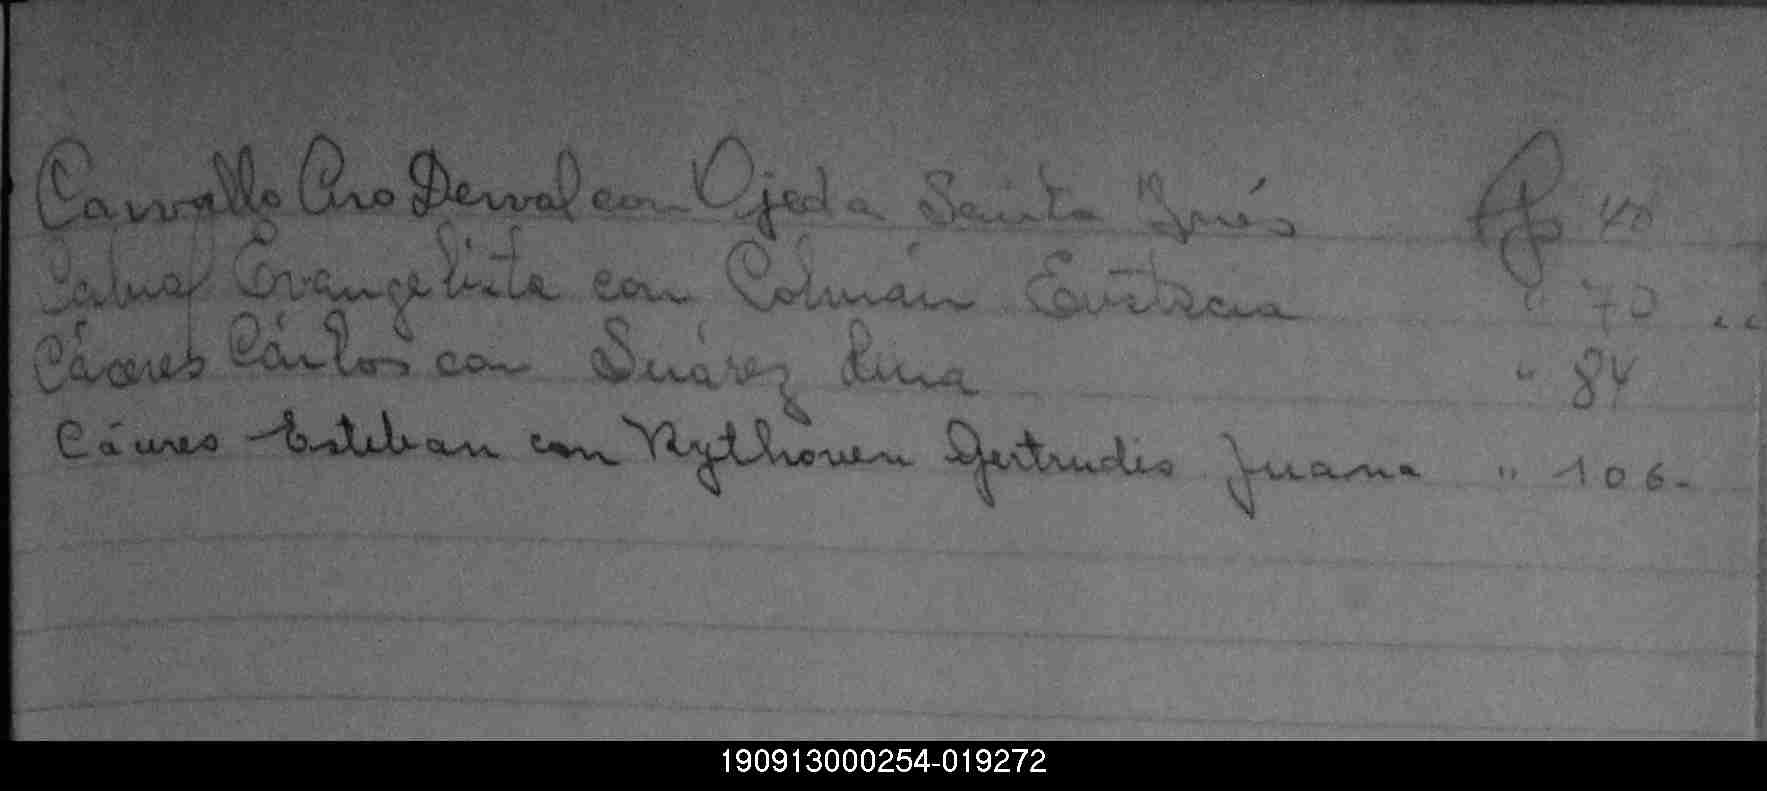 Carvallo Ciro Derval con Ojeda Santa Inés Fs 40
Cabral Evangelista con Colmán
Cáceres Cárlos con Suárez Lina " 84
Cáceres Esteban con Rythoven Gertrudis Juana " 106-
190913000254-019272